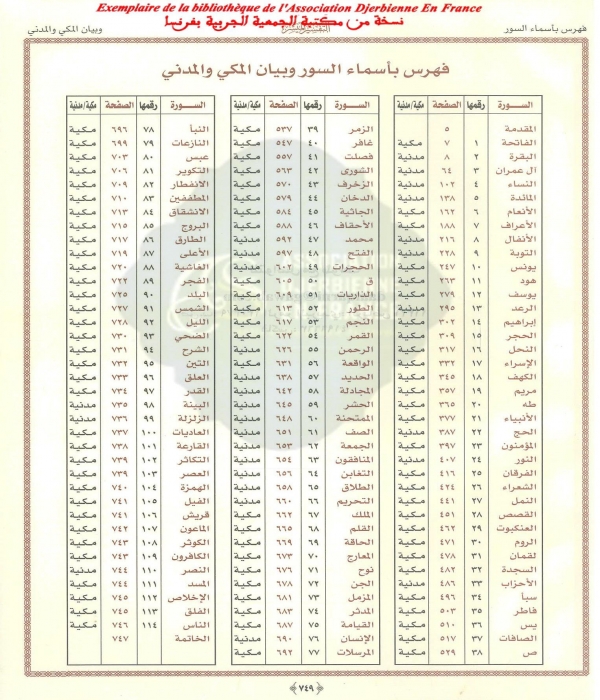 Exemplaire de la bibliothèque de l'Association Djerbienne En France
نسخة من مكتبة الجمعية الجربية بفرنسا
فهرس بأسماء السور
وبيان المكي والمدني
فهرس بأسماء السور وبيان المكي والمدني
السورة رقمها الصفحة مكية/مدنية
المقدمة ٥
الفاتحة ١ ٧ مكية
البقرة ٢ ٨ مدنية
آل عمران ٣ ٦٤ مدنية
النساء ٤ ١٠٢ مدنية
المائدة ٥ ١٣٨ مدنية
الأنعام ٦ ١٦٢ مكية
الأعراف ٧ ١٨٨ مكية
الأنفال ٨ ٢١٦ مدنية
التوبة ٩ ٢٢٨ مدنية
يونس ١٠ ٢٤٧ مكية
هود ١١ ٢٦٣ مكية
يوسف ١٢ ٢٧٩ مكية
الرعد ١٣ ٢٩٥ مدنية
إبراهيم ١٤ ٣٠٢ مكية
الحجر ١٥ ٣٠٩ مكية
النحل ١٦ ٣١٧ مكية
الإسراء ١٧ ٣٣٢ مكية
الكهف ١٨ ٣٤٥ مكية
مريم ١٩ ٣٥٧ مكية
طه ٢٠ ٣٦٥ مكية
الأنبياء ٢١ ٣٧٧ مكية
الحج ٢٢ ٣٨٧ مدنية
المؤمنون ٢٣ ٣٩٧ مكية
النور ٢٤ ٤٠٧ مدنية
الفرقان ٢٥ ٤١٦ مكية
الشعراء ٢٦ ٤٢٤ مكية
النمل ٢٧ ٤٤١ مكية
القصص ٢٨ ٤٥١ مكية
العنكبوت ٢٩ ٤٦٢ مكية
الروم ٣٠ ٤٧١ مكية
لقمان ٣١ ٤٧٨ مكية
السجدة ٣٢ ٤٨٢ مكية
الأحزاب ٣٣ ٤٨٦ مدنية
سبأ ٣٤ ٤٩٦ مكية
فاطر ٣٥ ٥٠٣ مكية
يس ٣٦ ٥١٠ مكية
الصافات ٣٧ ٥١٧ مكية
ص ٣٨ ٥٢٩ مكية
السورة رقمها الصفحة مكية/مدنية
الزمر ٣٩ ٥٣٧ مكية
غافر ٤٠ ٥٤٧ مكية
فصلت ٤١ ٥٥٧ مكية
الشورى ٤٢ ٥٦٣ مكية
الزخرف ٤٣ ٥٧٠ مكية
الدخان ٤٤ ٥٧٩ مكية
الجاثية ٤٥ ٥٨٤ مكية
الأحقاف ٤٦ ٥٨٨ مكية
محمد ٤٧ ٥٩٢ مدنية
الفتح ٤٨ ٥٩٧ مدنية
الحجرات ٤٩ ٦٠٢ مدنية
ق ٥٠ ٦٠٥ مكية
الذاريات ٥١ ٦٠٩ مكية
الطور ٥٢ ٦١٣ مكية
النجم ٥٣ ٦١٧ مكية
القمر ٥٤ ٦٢٢ مكية
الرحمن ٥٥ ٦٢٦ مدنية
الواقعة ٥٦ ٦٣١ مكية
الحديد ٥٧ ٦٣٨ مدنية
المجادلة ٥٨ ٦٤٢ مدنية
الحشر ٥٩ ٦٤٥ مدنية
الممتحنة ٦٠ ٦٤٨ مدنية
الصف ٦١ ٦٥١ مدنية
الجمعة ٦٢ ٦٥٣ مدنية
المنافقون ٦٣ ٦٥٤ مدنية
التغابن ٦٤ ٦٥٦ مدنية
الطلاق ٦٥ ٦٥٨ مدنية
التحريم ٦٦ ٦٦٠ مدنية
الملك ٦٧ ٦٦٢ مكية
القلم ٦٨ ٦٦٥ مكية
الحاقة ٦٩ ٦٦٩ مكية
المعارج ٧٠ ٦٧٣ مكية
نوح ٧١ ٦٧٦ مكية
الجن ٧٢ ٦٧٨ مكية
المزمل ٧٣ ٦٨١ مكية
المدثر ٧٤ ٦٨٣ مكية
القيامة ٧٥ ٦٨٧ مكية
الإنسان ٧٦ ٦٩٠ مدنية
المرسلات ٧٧ ٦٩٢ مكية
السورة رقمها الصفحة مكية/مدنية
النبأ ٧٨ ٦٩٦ مكية
النازعات ٧٩ ٦٩٩ مكية
عبس ٨٠ ٧٠٣ مكية
التكوير ٨١ ٧٠٦ مكية
الانفطار ٨٢ ٧٠٩ مكية
المطففين ٨٣ ٧١٠ مكية
الانشقاق ٨٤ ٧١٣ مكية
البروج ٨٥ ٧١٥ مكية
الطارق ٨٦ ٧١٧ مكية
الأعلى ٨٧ ٧١٩ مكية
الغاشية ٨٨ ٧٢٠ مكية
الفجر ٨٩ ٧٢٢ مكية
البلد ٩٠ ٧٢٥ مكية
الشمس ٩١ ٧٢٧ مكية
الليل ٩٢ ٧٢٨ مكية
الضحى ٩٣ ٧٣٠ مكية
الشرح ٩٤ ٧٣١ مكية
التين ٩٥ ٧٣٢ مكية
العلق ٩٦ ٧٣٣ مكية
القدر ٩٧ ٧٣٤ مكية
البينة ٩٨ ٧٣٥ مدنية
الزلزلة ٩٩ ٧٣٦ مدنية
العاديات ١٠٠ ٧٣٧ مكية
القارعة ١٠١ ٧٣٨ مكية
التكاثر ١٠٢ ٧٣٩ مكية
العصر ١٠٣ ٧٣٩ مكية
الهمزة ١٠٤ ٧٤٠ مكية
الفيل ١٠٥ ٧٤١ مكية
قريش ١٠٦ ٧٤١ مكية
الماعون ١٠٧ ٧٤٢ مكية
الكوثر ١٠٨ ٧٤٣ مكية
الكافرون ١٠٩ ٧٤٣ مكية
النصر ١١٠ ٧٤٤ مدنية
المسد ١١١ ٧٤٤ مكية
الإخلاص ١١٢ ٧٤٥ مكية
الفلق ١١٣ ٧٤٥ مكية
الناس ١١٤ ٧٤٦ مكية
الخاتمة ٧٤٧
٧٤٩